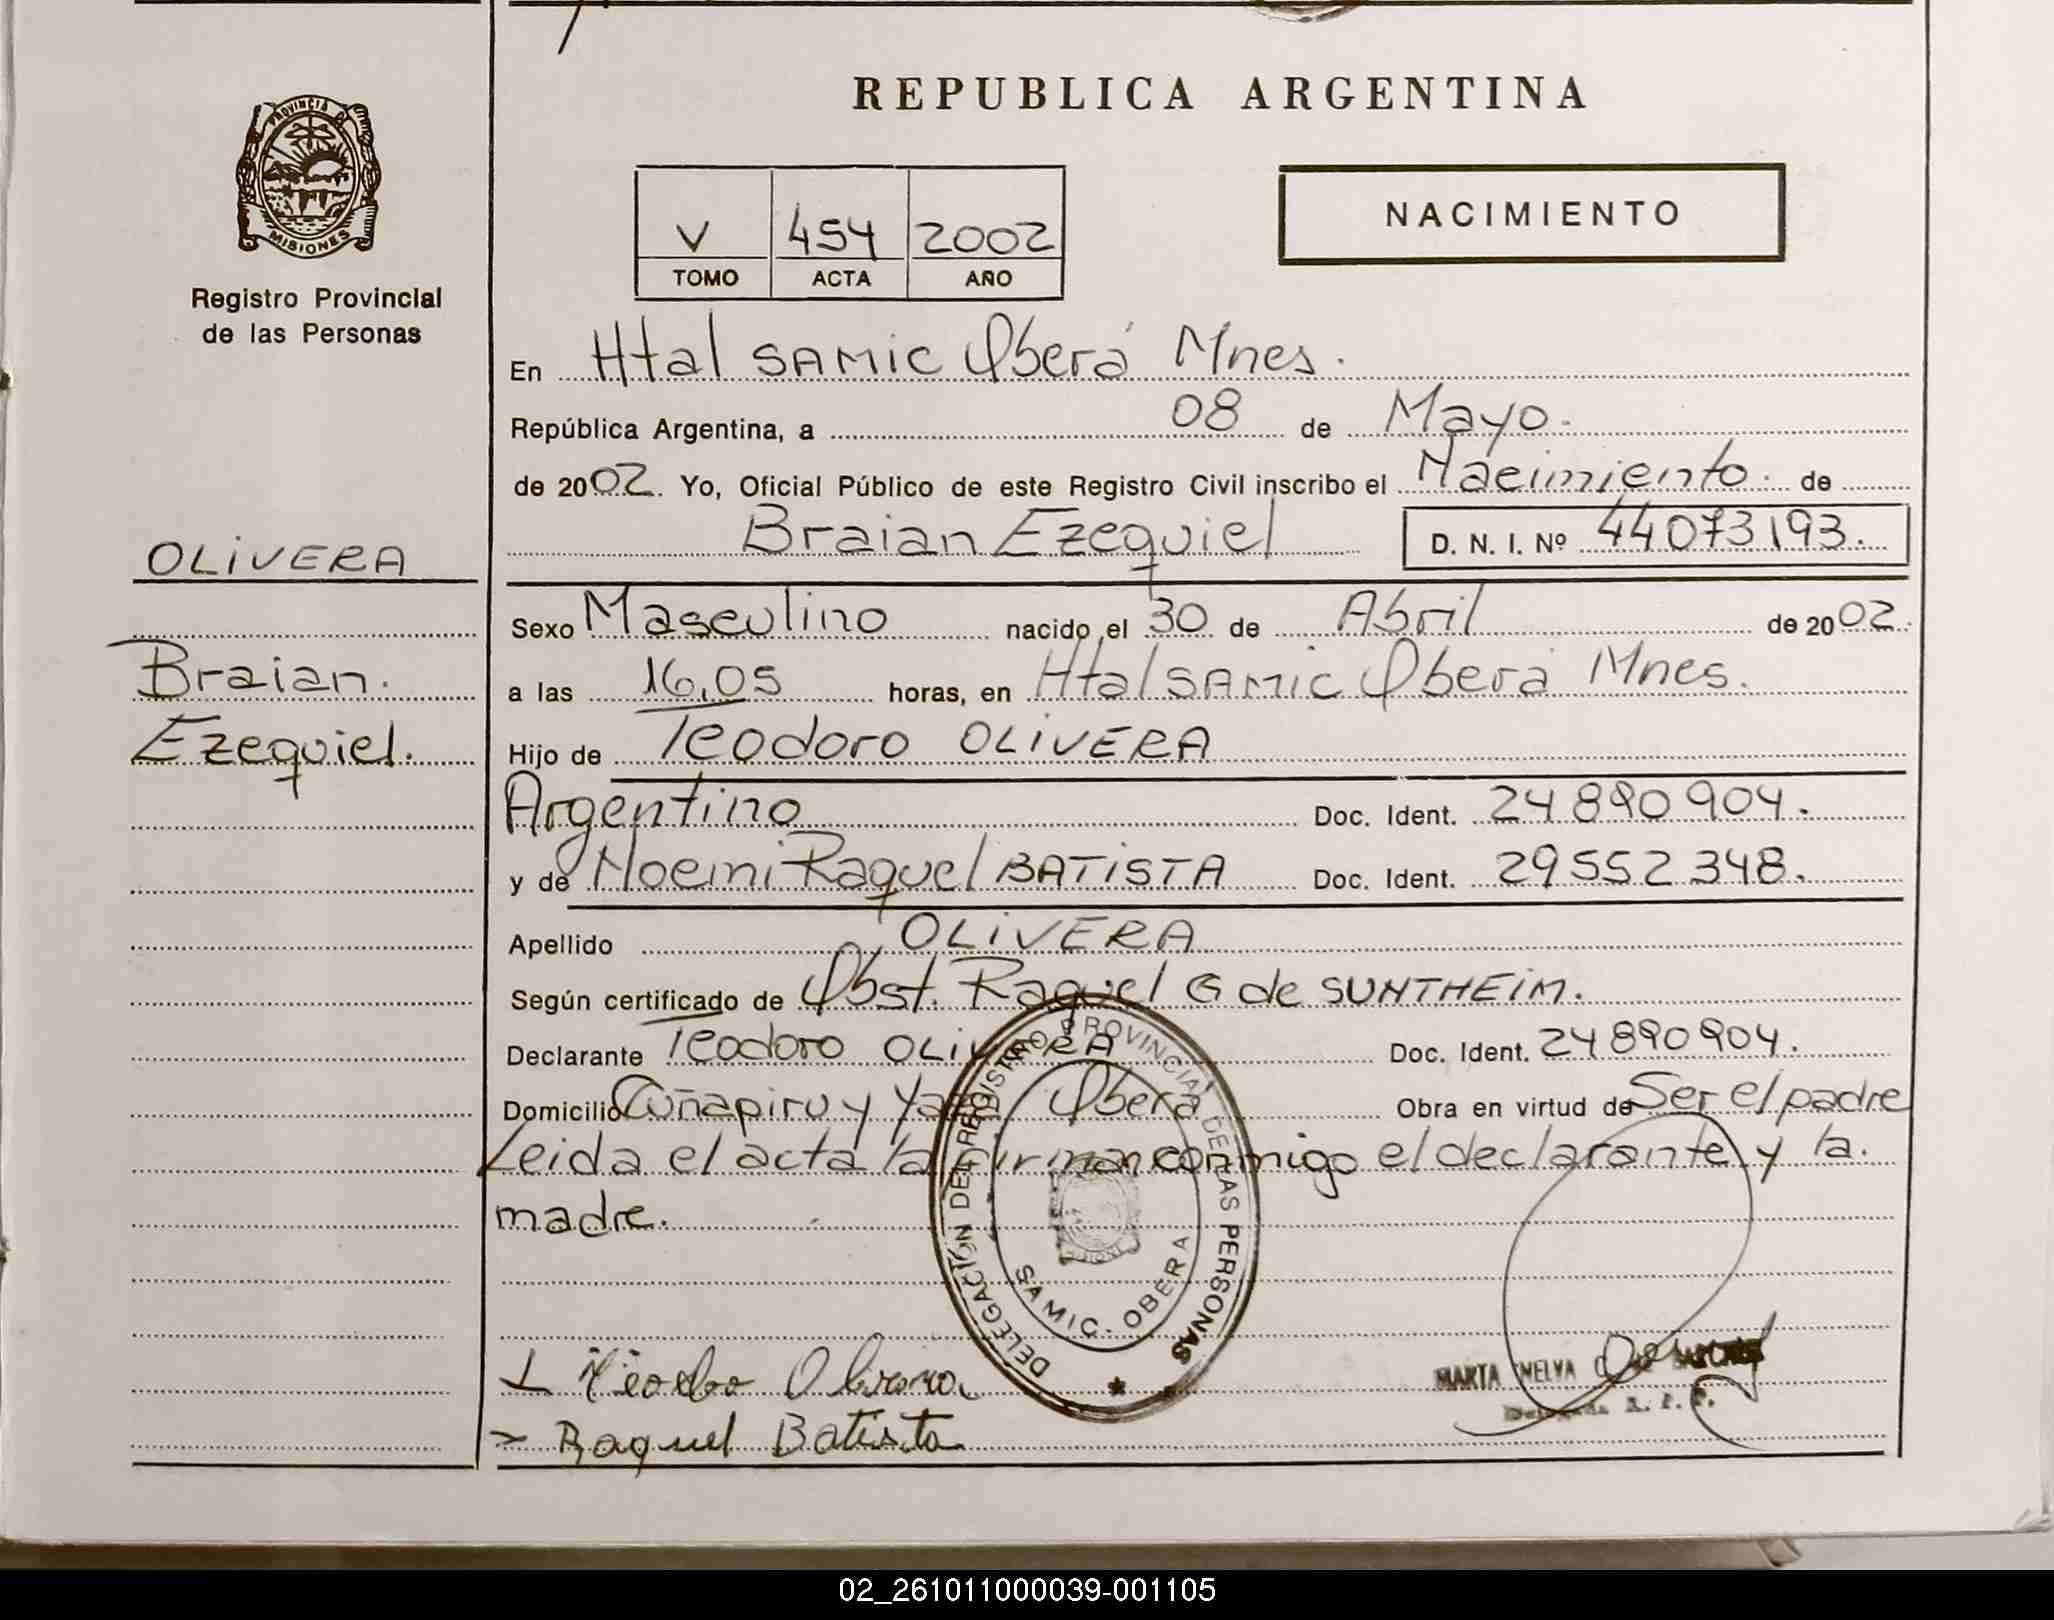 REPUBLICA ARGENTINA
PROVINCIA DE MISIONES
Registro Provincial
de las Personas
V 454 2002
TOMO ACTA AÑO
NACIMIENTO
En Htal SAMIC Oberá Mnes.
República Argentina, a 08 de Mayo.
de 2002. Yo, Oficial Público de este Registro Civil inscribo el Nacimiento. de
Braian Ezequiel D. N. I. Nº 44073193.
OLIVERA
Braian.
Ezequiel.
Sexo Masculino nacido el 30 de Abril de 2002.
a las 16,05 horas, en Htal SAMIC Oberá Mnes.
Hijo de Teodoro OLIVERA
Argentino Doc. Ident. 24890904.
y de Noemi Raquel BATISTA Doc. Ident. 29552348.
Apellido OLIVERA
Según certificado de Obst. Raquel G de SUNTHEIM.
Declarante Teodoro OLIVERA Doc. Ident. 24890904.
Domicilio Cuñapiru y Oberá Obra en virtud de Ser el padre
Leida el acta la firman conmigo el declarante y la.
madre.
DELEGACIÓN DEL REGISTRO PROVINCIAL DE LAS PERSONAS
SAMIC - OBERÁ
Olivera
Raquel Batista
MARTA NELVA
02_261011000039-001105